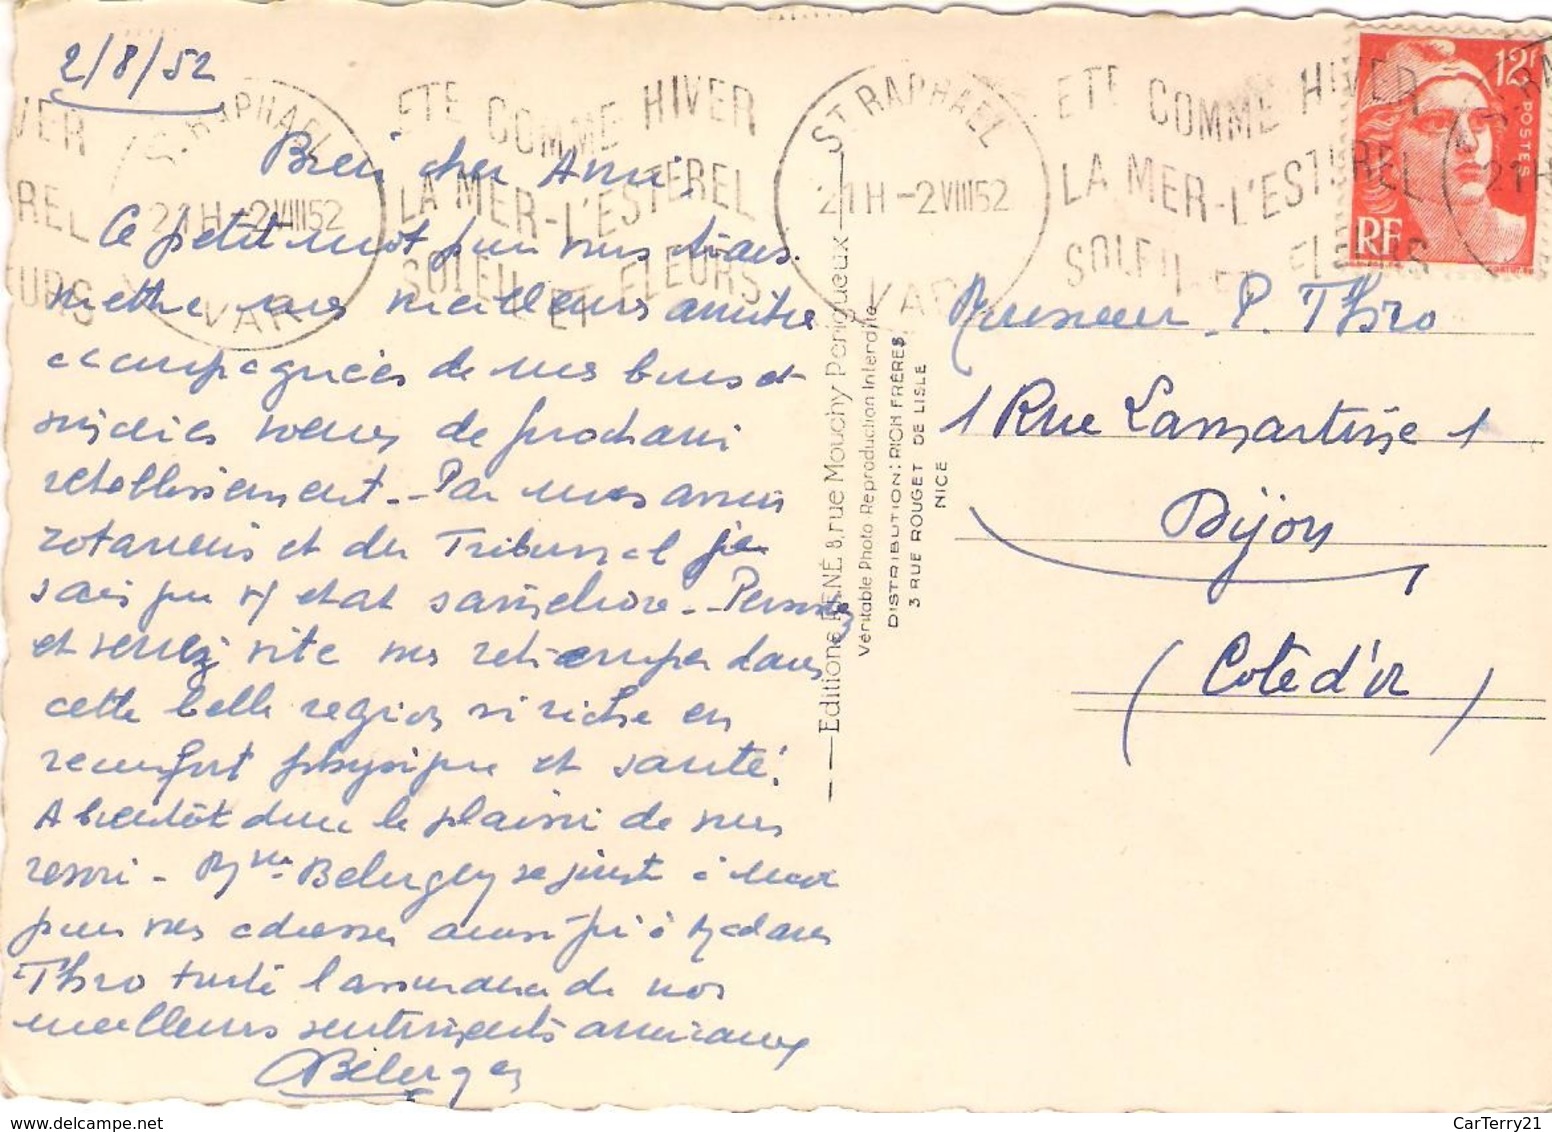 2/8/52
Bien cher Ami,
Ce petit mot pour vous trans-
mettre nos meilleures amitiés
accompagnées de nos bons et
sincères voeux de prochain
rétablissement - Par nos amis
rotariens et du Tribunal j'ai
su que v/ état s'améliore. - Pensez
et venez vite vous retremper dans
cette belle région si riche en
réconfort physique et santé!
A bientôt donc le plaisir de vous
revoir - Mme Belurgey se joint à moi
pour vous adresser ainsi qu'à Madame
Thiro toute l'assurance de nos
meilleurs sentiments amicaux
Belurgey
ETE COMME HIVER
LA MER-L'ESTEREL
SOLEIL ET FLEURS
ST RAPHAEL
21H -2 VIII 52
VAR
ETE COMME HIVER
LA MER-L'ESTEREL
SOLEIL ET FLEURS
ST RAPHAEL
21H -2 VIII 52
VAR
12F
POSTES
RF
Editions RENÉ 8, rue Mouchy Perigueux
Véritable Photo Reproduction Interdite
DISTRIBUTION: RICH FRÈRES
3 RUE ROUGET DE LISLE
NICE
Monsieur P. Thiro
1 Rue Lamartine 1
Dijon
(Cote d'or)
www.delcampe.net
CarTerry21